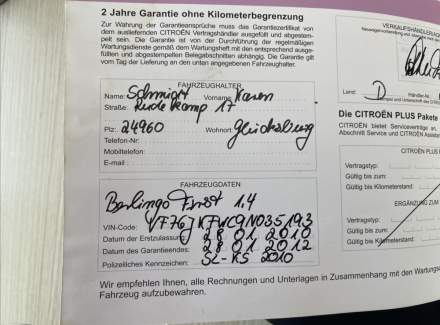 2 Jahre Garantie ohne Kilometerbegrenzung
Zur Wahrung der Garantieansprüche muss das Garantiezertifikat von
dem ausliefernden CITROËN Vertragshändler ausgefüllt und abgestem-
pelt sein. Die Garantie ist von der Durchführung der regelmäßigen
Wartungsdienste gemäß dem Wartungsheft mit den entsprechend ausge-
füllten und abgestempelten Belegabschnitten abhängig. Die Garantie gilt
vom Tag der Lieferung an den unten angegebenen Fahrzeughalter.
FAHRZEUGHALTER
Name: Schmidt Vorname: Karen
Straße: Rude kamp 17
Plz: 24960 Wohnort: Glücksburg
Telefon-Nr:
Mobiltelefon:
E-mail:
FAHRZEUGDATEN
Berlingo First 1,4
VIN-Code: VF76JKFWC9N035193
Datum der Erstzulassung: 28 01 2010
Datum des Garantieendes: 28 01 2012
Polizeiliches Kennzeichen: SL-KS 2010
Wir empfehlen Ihnen, alle Rechnungen und Unterlagen in Zusammenhang mit den Wartungs
Fahrzeug aufzubewahren.
VERKAUFSHÄNDLER
Land: D Händler-Nr.:
Die CITROËN PLUS Pakete
CITROËN bietet Serviceverträge an,
Abschnitt Service und CITROËN Assistan
CITROËN PLUS
Vertragstyp:
Gültig bis zum:
Gültig bis Kilometerstand:
ERGÄNZUNG ZUM
Vertragstyp:
Gültig bis zum:
Gültig bis Kilometerstand: